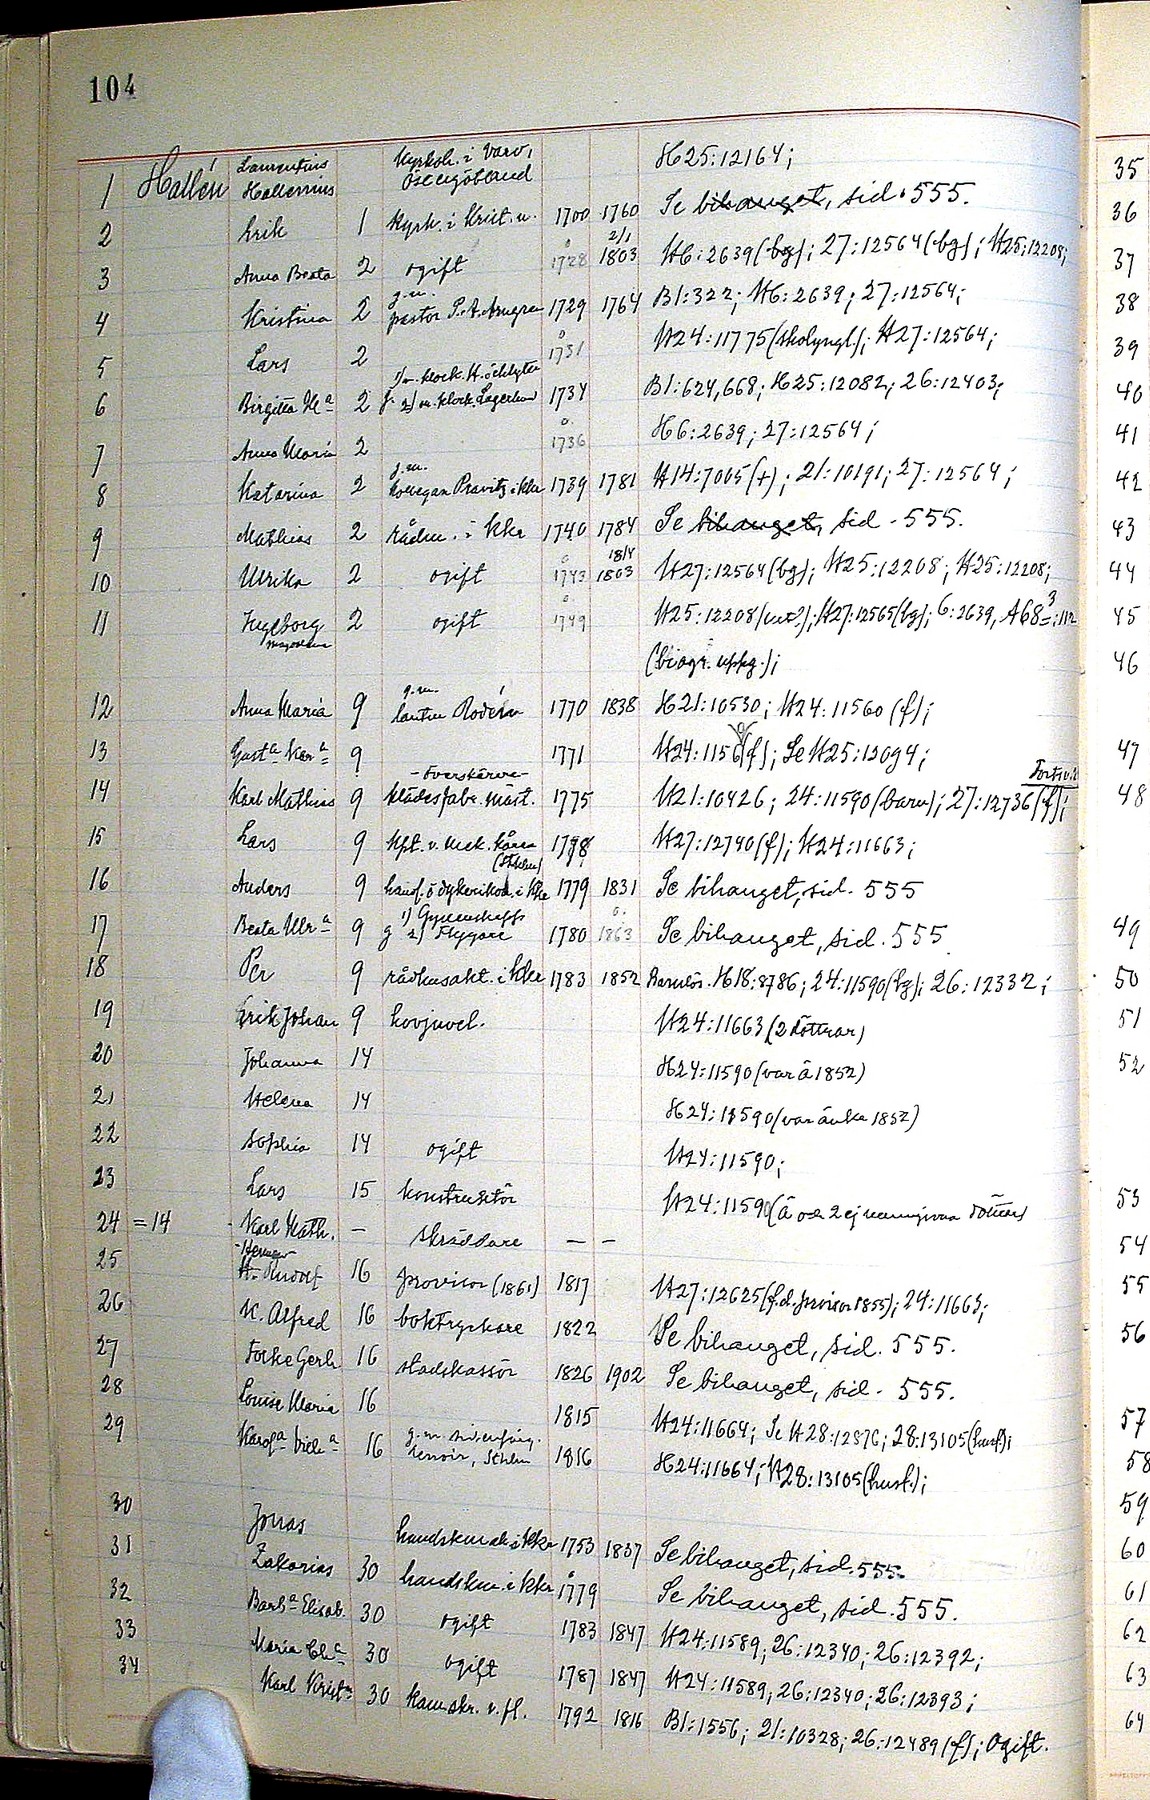 104
1 Hallén Laurentius Hallenius Kyrkoh. i Varv, Östergötland H25:12164;
2 Erik 1 Kyrk. i Krist.n. 1700 1760 Se bihanget, sid. 555.
3 Anna Beata 2 ogift 1728 2/1 1803 H6:2639(bg); 27:12564(bg); H25:12208;
4 Kristina 2 g.m. pastor 1729 1764 B1:322; H6:2639; 27:12564;
5 Lars 2 1731 H24:11775(skolyngl.); H27:12564;
6 Birgitta 2 1734 B1:624,668; H25:12082; 26:12403;
7 Anna Maria 2 1736 H6:2639; 27:12564;
8 Katarina 2 g.m. 1739 1781 H14:7005(+); 21:10191; 27:12564;
9 Mathias 2 rådm. i Kkr 1740 1784 Se bihanget, sid. 555.
10 Ulrika 2 ogift 1743 18/4 1803 H27:12564(bg); H25:12208; H25:12208;
11 Ingeborg Magdalena 2 ogift 1749 H25:12208; H27:12565(bg); 6:2639,
(biogr. uppg.);
12 Anna Maria 9 g.m. Rodén 1770 1838 H21:10530; H24:11560(f);
13 Gust.ª Kar.ª 9 1771 Se H25:12094;
14 Karl Mathias 9 -överskärare- klädesfabr. mäst. 1775 H21:10426; 24:11590(barn); 27:12736(f);
15 Lars 9 (Sthlm) 1778 H27:12740(f); H24:11663;
16 Anders 9 1779 1831 Se bihanget, sid. 555
17 Beata Ulr.ª 9 g 1) 2) Flygare 1780 1863 Se bihanget, sid. 555
18 Per 9 rådhusakt. i Kkr 1783 1852 Barnlös. H18:8786; 24:11590(bg); 26:12332;
19 Erik Johan 9 hovjuvel. H24:11663 (2 döttrar)
20 Johanna 14 H24:11590 (var ä 1852)
21 Helena 14 H24:11590 (var änka 1852)
22 Sophia 14 ogift H24:11590;
23 Lars 15 konstruktör H24:11590
24 =14 Karl Math. — skräddare — —
25 Herman H. Rudolf 16 provisor (1861) 1817 H27:12625(f.d. provisor 1855); 24:11663;
26 K. Alfred 16 boktryckare 1822 Se bihanget, sid. 555.
27 Gerh 16 stadskassör 1826 1902 Se bihanget, sid. 555.
28 Louise Maria 16 1815 H24:11664; Se H28:12876; 28:13105(husf);
29 16 g.m. Sthlm 1816 H24:11664; H28:13105(husf.);
30 Jonas handskmak i Kkr 1753 1837 Se bihanget, sid. 555.
31 Zakarias 30 handskm. i Kkr 1779 Se bihanget, sid. 555.
32 Barb.ª Elisab. 30 ogift 1783 1847 H24:11589; 26:12340; 26:12392;
33 Maria 30 ogift 1787 1847 H24:11589; 26:12340; 26:12393;
34 Karl 30 1792 1816 B1:1556; 21:10328; 26:12489(f); Ogift.
35
36
37
38
39
40
41
42
43
44
45
46
47
48
49
50
51
52
53
54
55
56
57
58
59
60
61
62
63
64